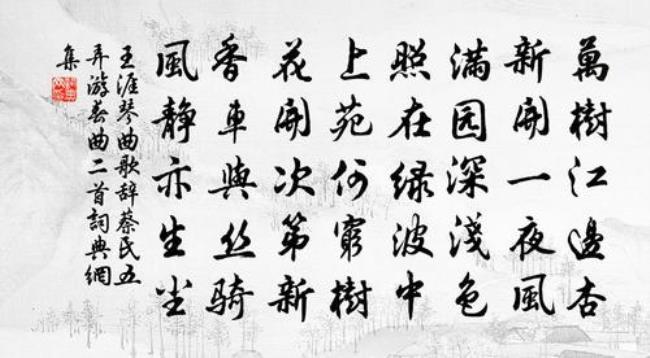 萬樹江邊杏
新開一夜風
满园深淺色
照在绿波中
上苑何窮樹
花開次第新
香車與丝骑
風静亦生尘
王涯琴曲歌辞蔡氏五
弄游春曲二首詞典網
集